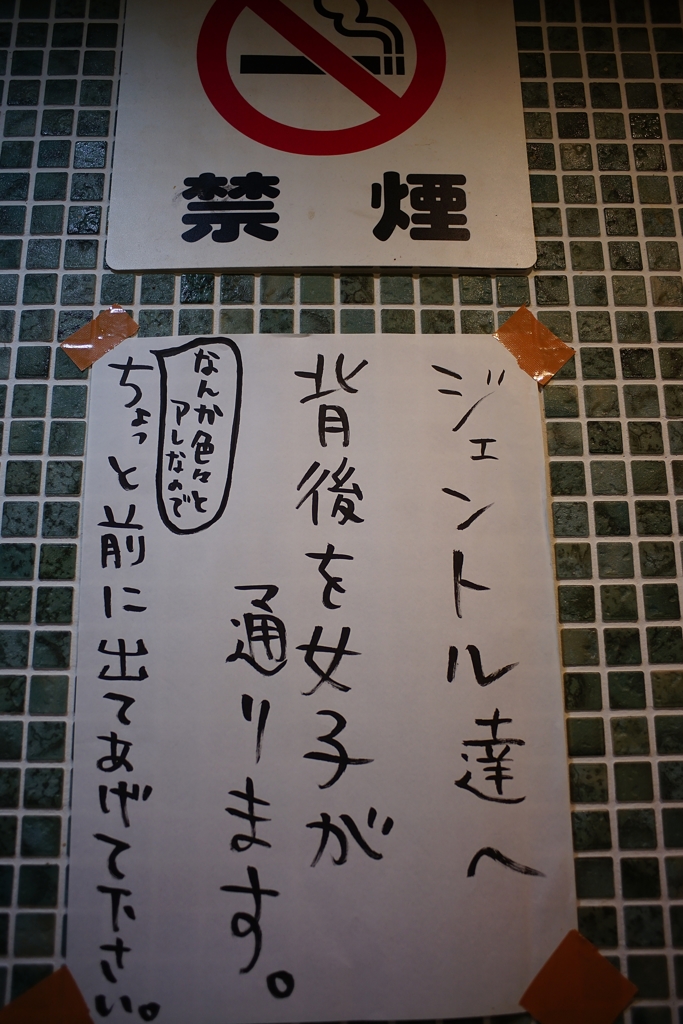 禁煙
ジェントル達へ
背後を女子が
通ります。
なんか色々と
アレなので
ちょっと前に出てあげて下さい。